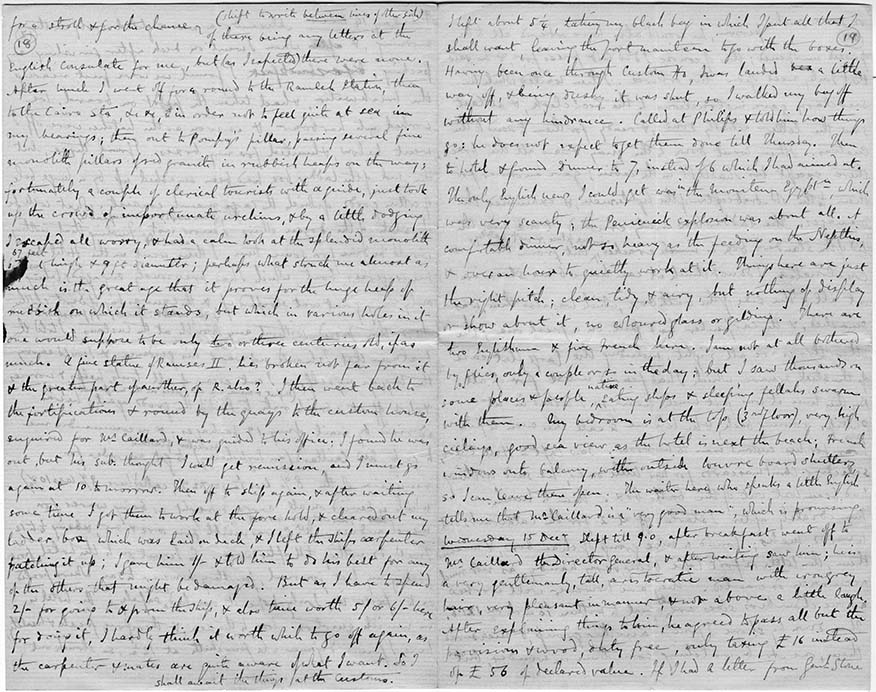 (18)
for a stroll & for the chance
(I left to write between lines of this side)
of there being any letters at the
English Consulate for me, but (as I expected) there were none.
After lunch I went off for a round to the Ramleh Station, then
to the Cairo Sta, &c &c, in order not to feel quite at sea in
my bearings; then out to Pompey's pillar, passing several fine
monolith pillars of red granite in rubbish heaps on the way;
fortunately a couple of clerical tourists with a guide, just took
up the crowd of importunate urchins, & by a little dodging
I escaped all worry, & had a calm look at the splendid monolith
67 feet high & 9 ft diameter; perhaps what struck me almost as
much is the great age that it proves for the huge heap of
rubbish on which it stands, but which in various holes in it
one would suppose to be only two or three centuries old, if as
much. A fine statue of Ramses II. lies broken not far from it
& the greater part of another, of R. also? I then went back to
the fortifications & round by the quays to the custom house,
enquired for Mr Caillard, & was guided to his office; I found he was
out, but his sub. thought I could get remission, and I must go
again at 10 tomorrow. Then off to ship again, & after waiting
some time I got them to work at the fore hold, & cleared out my
box which was laid on deck & I left the ship's carpenter
patching it up; I gave him 1/- & told him to do his best for any
of the others that might be damaged. But as I have to spend
2/- for going to & from the ship, & also time worth 5/- or 6/- here
for doing it, I hardly think it worth while to go off again, as
the carpenter & mates are quite aware of what I want. So I
shall await the things at the Customs.
(19)
I left about 5 1/4, taking my black bag in which I put all that I
shall want, leaving the portmanteau to go with the boxes.
Having been once through Custom Ho, I was landed a little
way off, & being dusky it was shut, so I walked my bag off
without any hindrance. Called at Philips & told him how things
go; he does not expect to get them done till Thursday. Then
to hotel & found dinner to 7, instead of 6 which I had aimed at.
The only English news I could get was in the Moniteur Egyptn which
was very scanty; the Penicuick explosion was about all. A
comfortable dinner, not so heavy as the feeding on the Nepthis,
& over an hour to quietly work at it. Things here are just
the right pitch; clean, tidy, & airy, but nothing of display
or show about it, no coloured glass or gilding. There are
two Englishmen & five French here. I am not at all bothered
by flies, only a couple or so in the day; but I saw thousands on
some places & people, native eating shops & sleeping fellahs swarm
with them. My bedroom is at the top, (3rd floor), very high
ceilings, good sea view as the hotel is next the beach; French
windows onto balcony, with outside louvre board shutters,
so I can leave them open. The waiter here, who speaks a little English
tells me that Mr Caillard is a "very good man", which is promising.
Wednesday 15 Decr Slept till 9.0, after breakfast went off to
Mr Caillard the Director General, & after waiting saw him; he is
a very gentlemanly, tall, aristocratic man with iron grey
hair, very pleasant in manner, & not above a little laugh.
After explaining things to him, he agreed to pass all but the
provisions & wood, duty free, only taxing £16 instead
of £56 of declared value. If I had a letter from Genl Stone